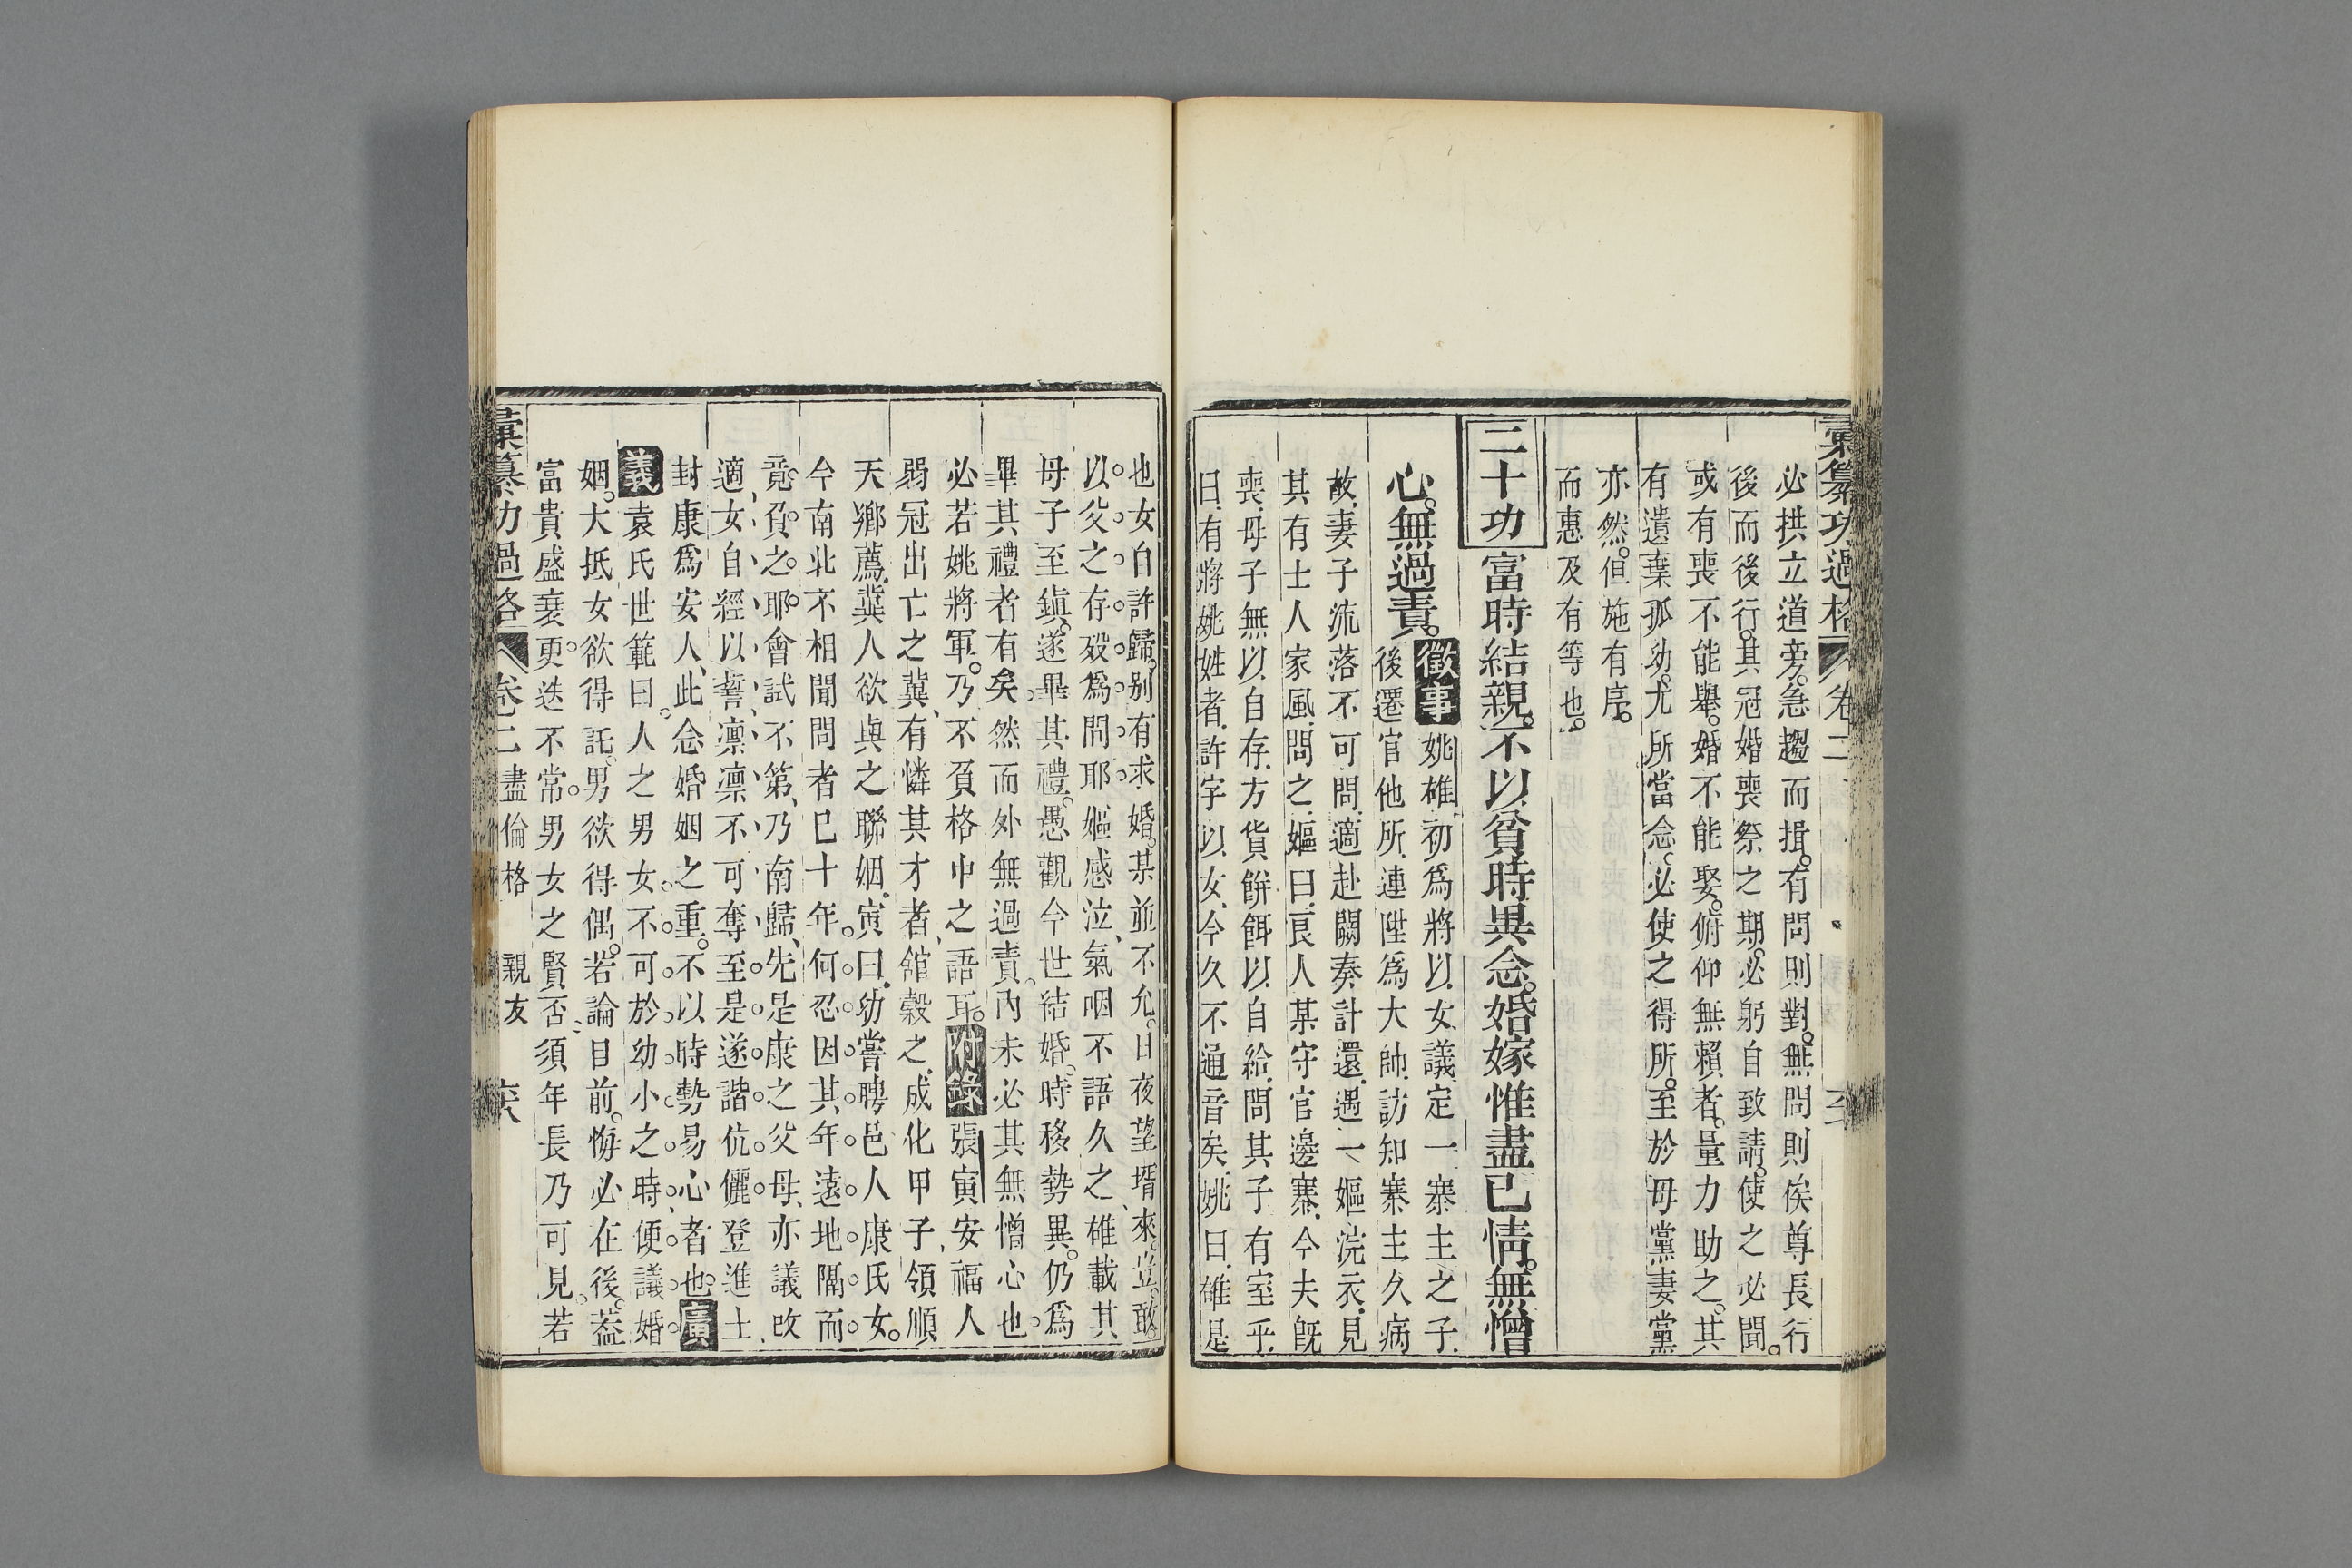 彙纂功過格 卷二
必拱立道旁。急趨而揖。有問則對。無問則俟尊長行
後而後行。其冠婚喪祭之期。必躬自致請。使之必聞。
或有喪不能舉。婚不能娶。俯仰無賴者。量力助之。其
有遺棄孤幼。尤所當念。必使之得所。至於母黨妻黨
亦然。但施有序。
而惠及有等也。
二十功 富時結親。不以貧時異念。婚嫁惟盡已情。無憎
心。無過責。徵事 姚雄、初爲將以女議定一寨主之子、
後遷官他所、連陞爲大帥、訪知寨主久病
故、妻子流落不可問、適赴闕奏計還、遇一嫗浣衣、見
其有士人家風、問之、嫗曰、良人某守官邊寨、今夫旣
喪、母子無以自存、方貨餅餌以自給、問其子有室乎、
曰、有將姚姓者、許字以女、今久不通音矣、姚曰、雄是
也女自許歸。别有求婚。某並不允。日夜望壻來。豈敢。
以父之存歿爲間耶嫗感泣、氣咽不語久之、雄載其
母子至鎮。遂畢其禮。愚觀今世結婚。時移勢異。仍爲
畢其禮者有矣。然而外無過責。内未必其無憎心也。
必若姚將軍。乃不負格中之語耳。附錄 張寅安福人
弱冠出亡之冀、有憐其才者、舘穀之、成化甲子、領順
天鄉薦、冀人欲與之聯姻、寅曰、幼嘗聘邑人康氏女。
今南北不相聞問者已十年。何忍因其年遠地隔而
竟負之耶會試不第、乃南歸、先是康之父母、亦議改
適、女自經以誓、凛凛不可奪至是遂諧伉儷登進士、
封康爲安人、此念婚姻之重。不以時勢易心者也。廣
義 袁氏世範曰。人之男女不可於幼小之時。便議婚
姻。大抵女欲得託。男欲得偶。若論目前。悔必在後。蓋
富貴盛衰。更迭不常。男女之賢否。須年長乃可見。若
彙纂功過格 卷二 盡倫格 親友